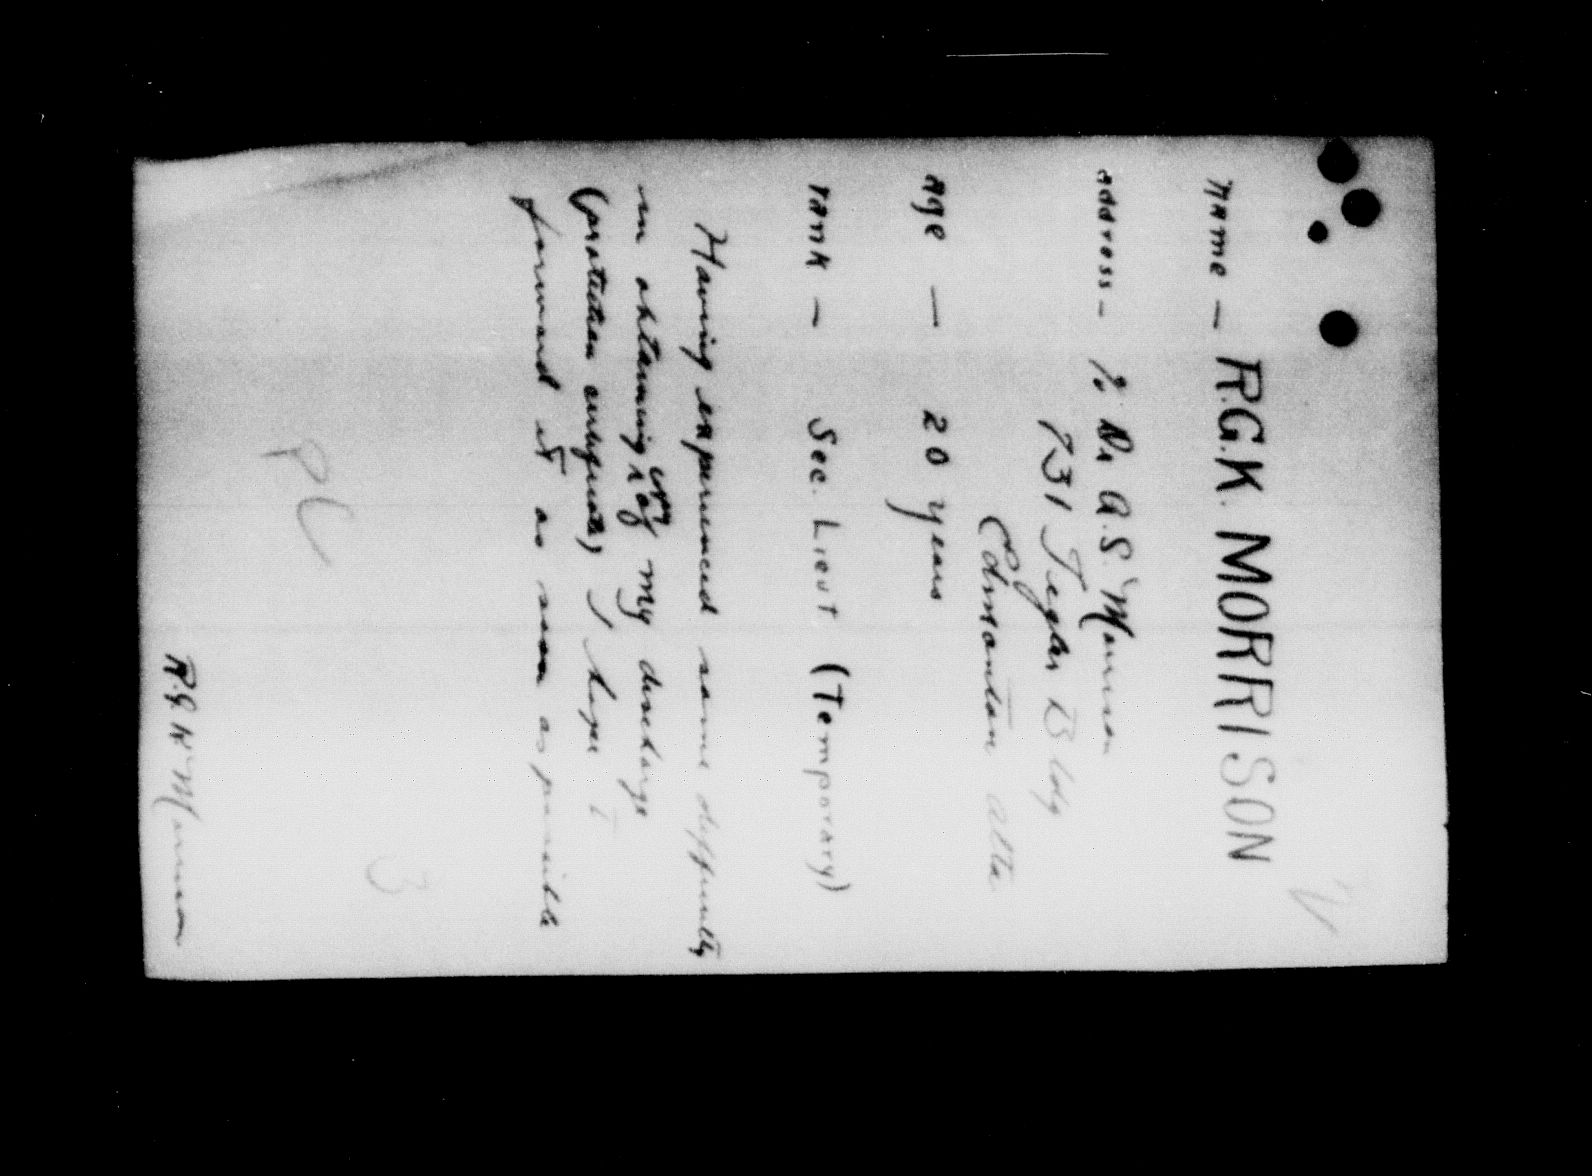 Name — R.G.K. MORRISON
address — c/o Dr A.S. Morrison
731 Tegler Bldg
Edmonton Alta
Age — 20 years
rank — Sec. Lieut (Temporary)
Having experienced some difficulty
in obtaining copy of my discharge
(protection certificate, I hope I
forward it as soon as possible
R.G.K. Morrison
PC
3